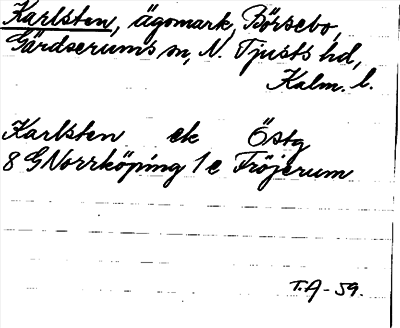 Karlsten, ägomark, Börsebo,
Gärdserums sn, N. Tjusts hd,
Kalm. l.
Karlsten ek Östg
8 G Norrköping 1 e Fröjerum
T.A-59.